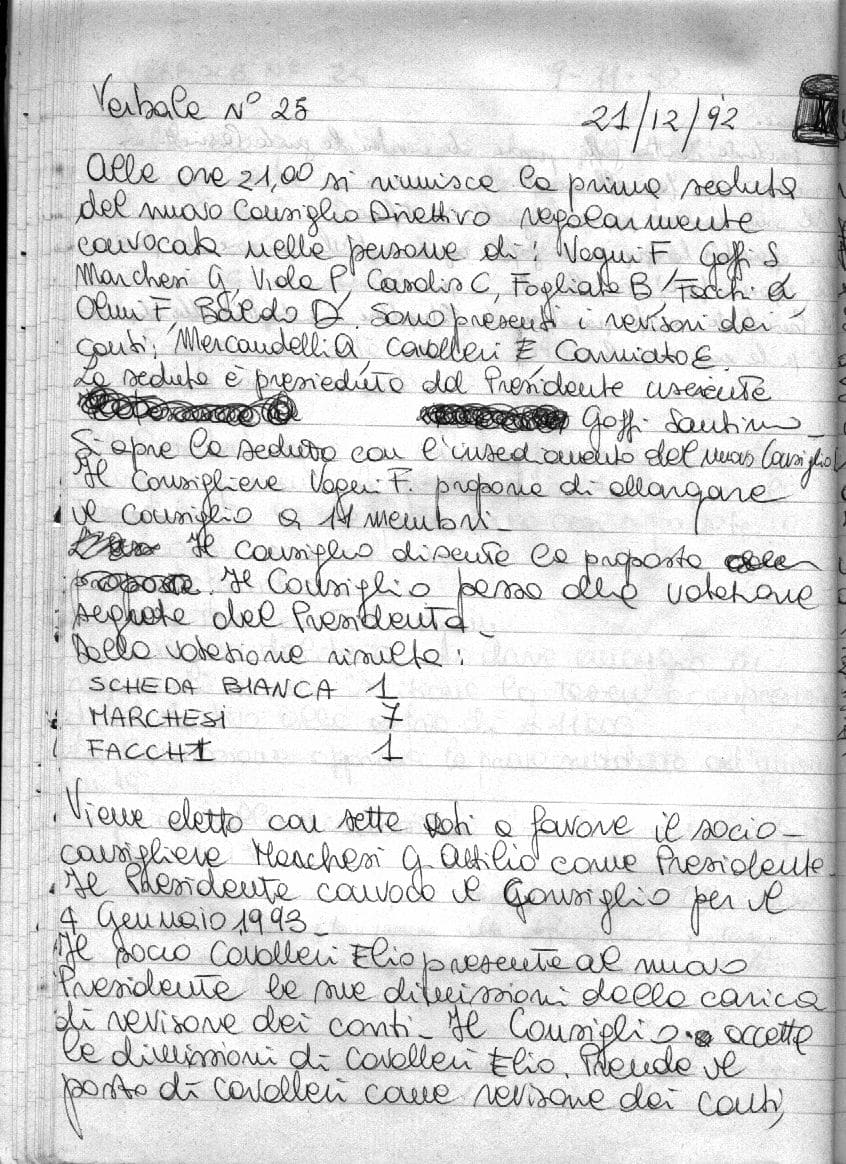 Verbale N° 25 21/12/92
Alle ore 21,00 si riunisce la prima seduta
del nuovo Consiglio Direttivo regolarmente
convocata nelle persone di: Vagni F. Goffi S
Marchesi G, Viola P, Casolis C, Fogliata B, Facchi
Olmi F, Baldo D. Sono presenti i revisori dei
conti: Mercandelli A Cavalleri E Canniato E.
La seduta è presieduta dal Presidente uscente
Goffi Santino
Si apre la seduta con l'insediamento del nuovo Consiglio
Il Consigliere Vagni F. propone di allargare
il Consiglio a 11 membri
Il Consiglio discute la proposta
Il Consiglio passa alla votazione
segreta del Presidente
Dalla votazione risulta:
SCHEDA BIANCA 1
MARCHESI 7
FACCHI 1
Viene eletto con sette voti a favore il socio-
consigliere Marchesi G. Attilio come Presidente.
Il Presidente convoca il Consiglio per il
4 Gennaio 1993
Il socio Cavalleri Elio presenta al nuovo
Presidente le sue dimissioni dalla carica
di revisore dei conti. Il Consiglio accetta
le dimissioni di Cavalleri Elio. Prende il
posto di Cavalleri come revisore dei conti,